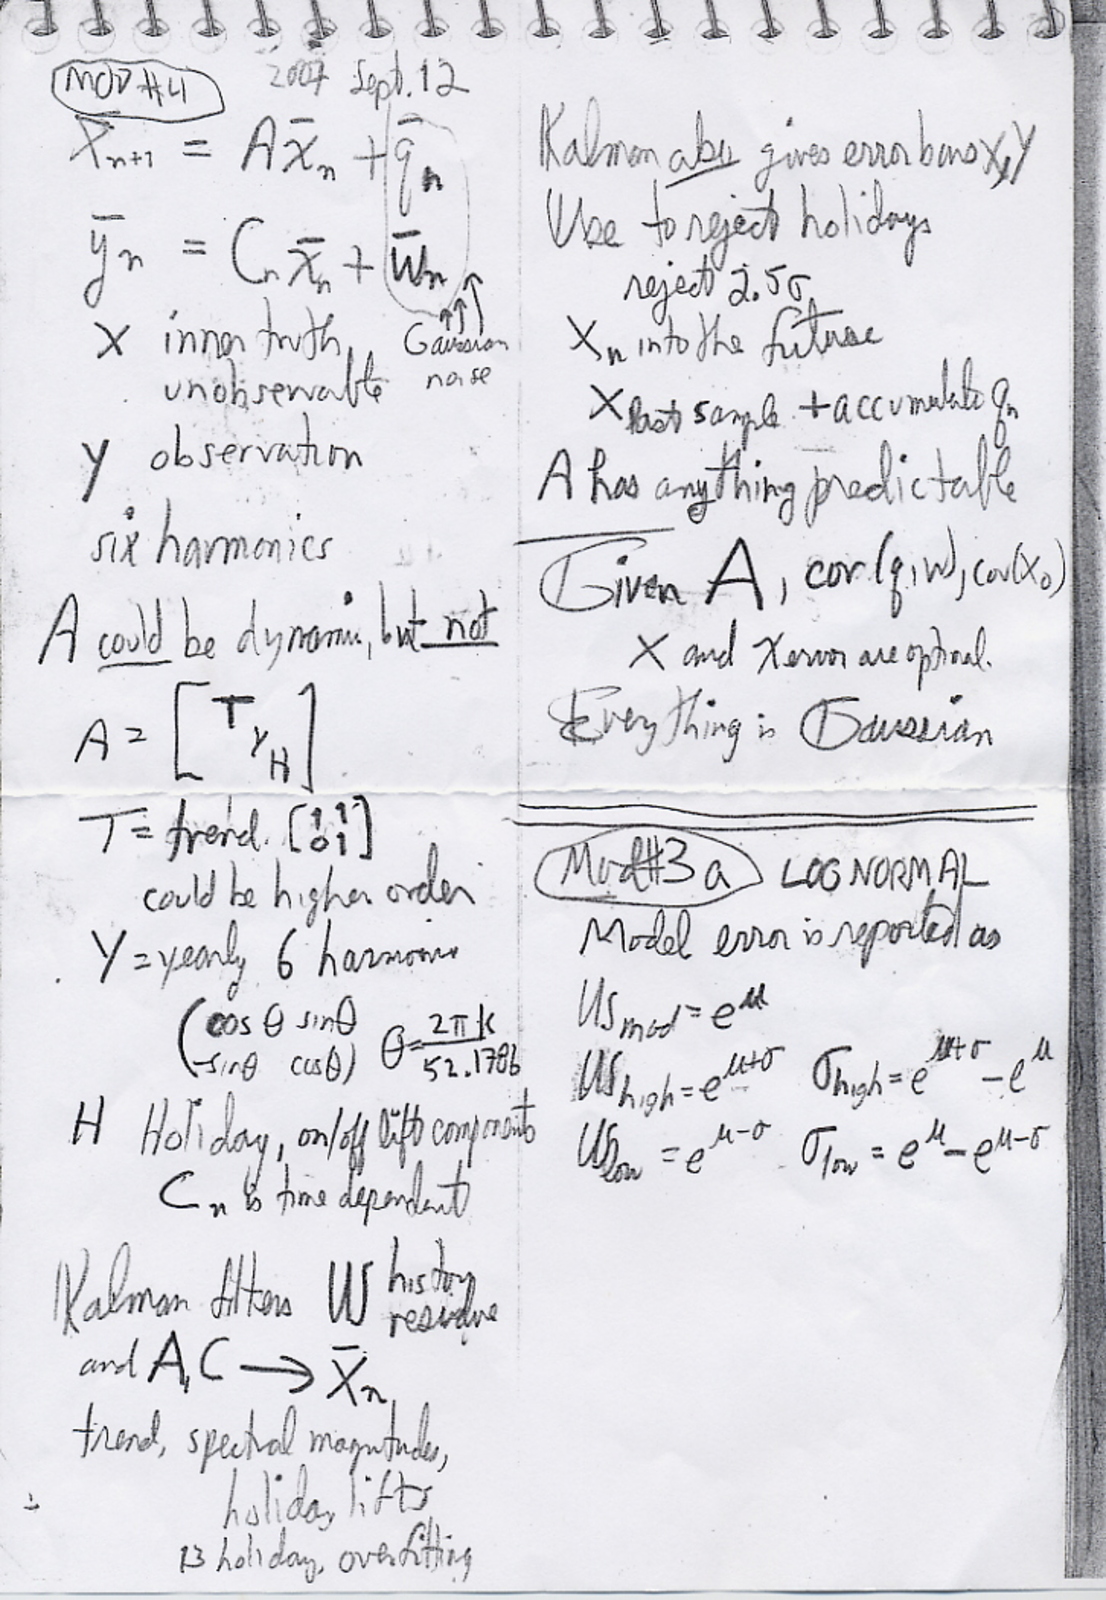 MOD #4
2007 Sept. 12
x̄n+1 = Ax̄n + q̄n
ȳn = Cn x̄n + w̄n
Gaussian
noise
X inner truth,
unobservable
Y observation
six harmonics
A could be dynamic, but not
A = [T Y H]
T = trend. [1 1
0 1]
could be higher order
Y = yearly 6 harmonic
(cos θ sin θ
-sin θ cos θ) θ = 2πk/52.1786
H Holiday, on/off lift components
Cn is time dependent
Kalman filters W history
residue
and A, C → X̄n
trend, spectral magnitudes,
holiday lifts
13 holiday, overfitting
Kalman also gives error bars X, Y
Use to reject holidays
reject 2.5σ
Xn into the future
X last sample + accumulate qn
A has anything predictable
Given A, cov(q,w), cov(x0)
X and X error are optimal.
Everything is Gaussian
Mod #3a LOGNORMAL
Model error is reported as
US mod = e^μ
US high = e^μ+σ σhigh = e^μ+σ - e^μ
US low = e^μ-σ σlow = e^μ - e^μ-σ